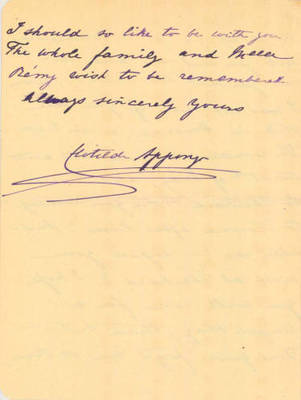 I should so like to be with you
The whole family and
Rémy wish to be remembered
always sincerely yours
Clotilde Appony